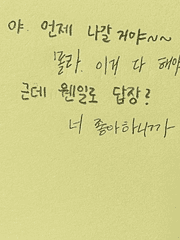 야. 언제 나갈 거야~~
몰라. 이거 다 해야
근데 웬일로 답장?
너 좋아하니까